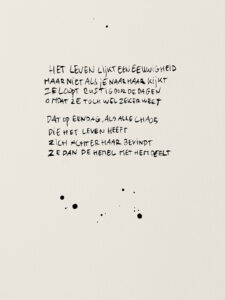 HET LEVEN LIJKT EEN EEUWIGHEID
MAAR NIET ALS JE NAAR HAAR KIJKT
ZE LOOPT RUSTIG DOOR DE DAGEN
OMDAT ZE TOCH WEL ZEKER WEET
DAT OP EEN DAG, ALS ALLE CHAOS
DIE HET LEVEN HEEFT
ZICH ACHTER HAAR BEVINDT
ZE DAN DE HEMEL MET HEM DEELT